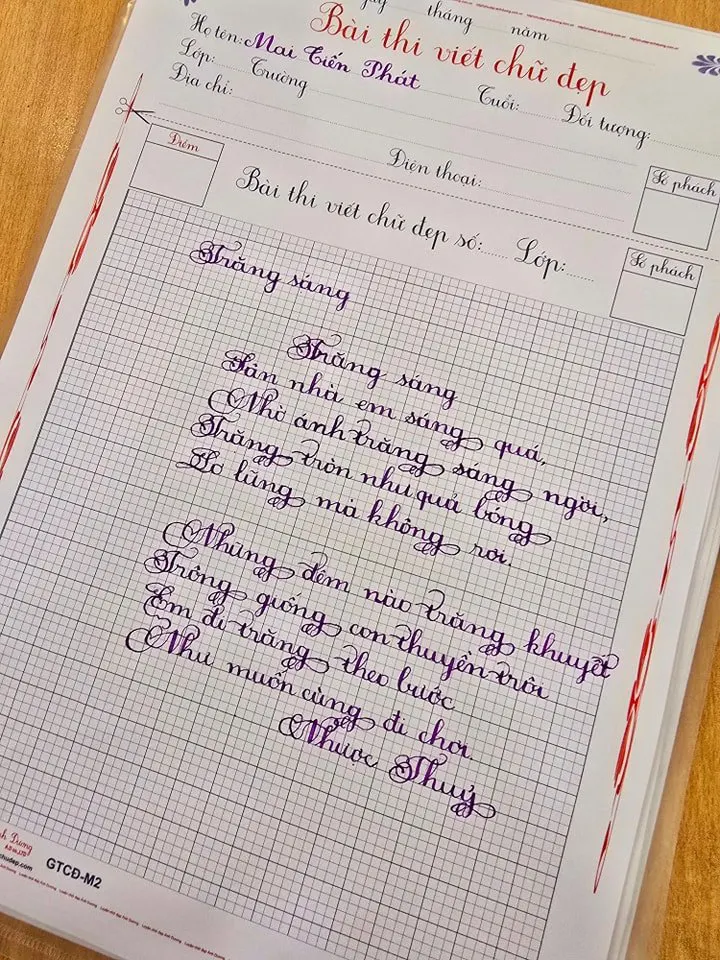 tháng năm
Bài thi viết chữ đẹp
Họ tên: Mai Tiến Phát
Lớp: Trường Tuổi: Đối tượng:
Địa chỉ:
Điện thoại:
Điểm
Số phách
Bài thi viết chữ đẹp số: Lớp:
Số phách
Trăng sáng
Trăng sáng
Sân nhà em sáng quá,
Nhờ ánh trăng sáng ngời,
Trăng tròn như quả bóng
Lơ lửng mà không rơi.
Những đêm nào trăng khuyết
Trông giống con thuyền trôi
Em đi trăng theo bước
Như muốn cùng đi chơi.
Nhược Thuỷ
GTCĐ-M2